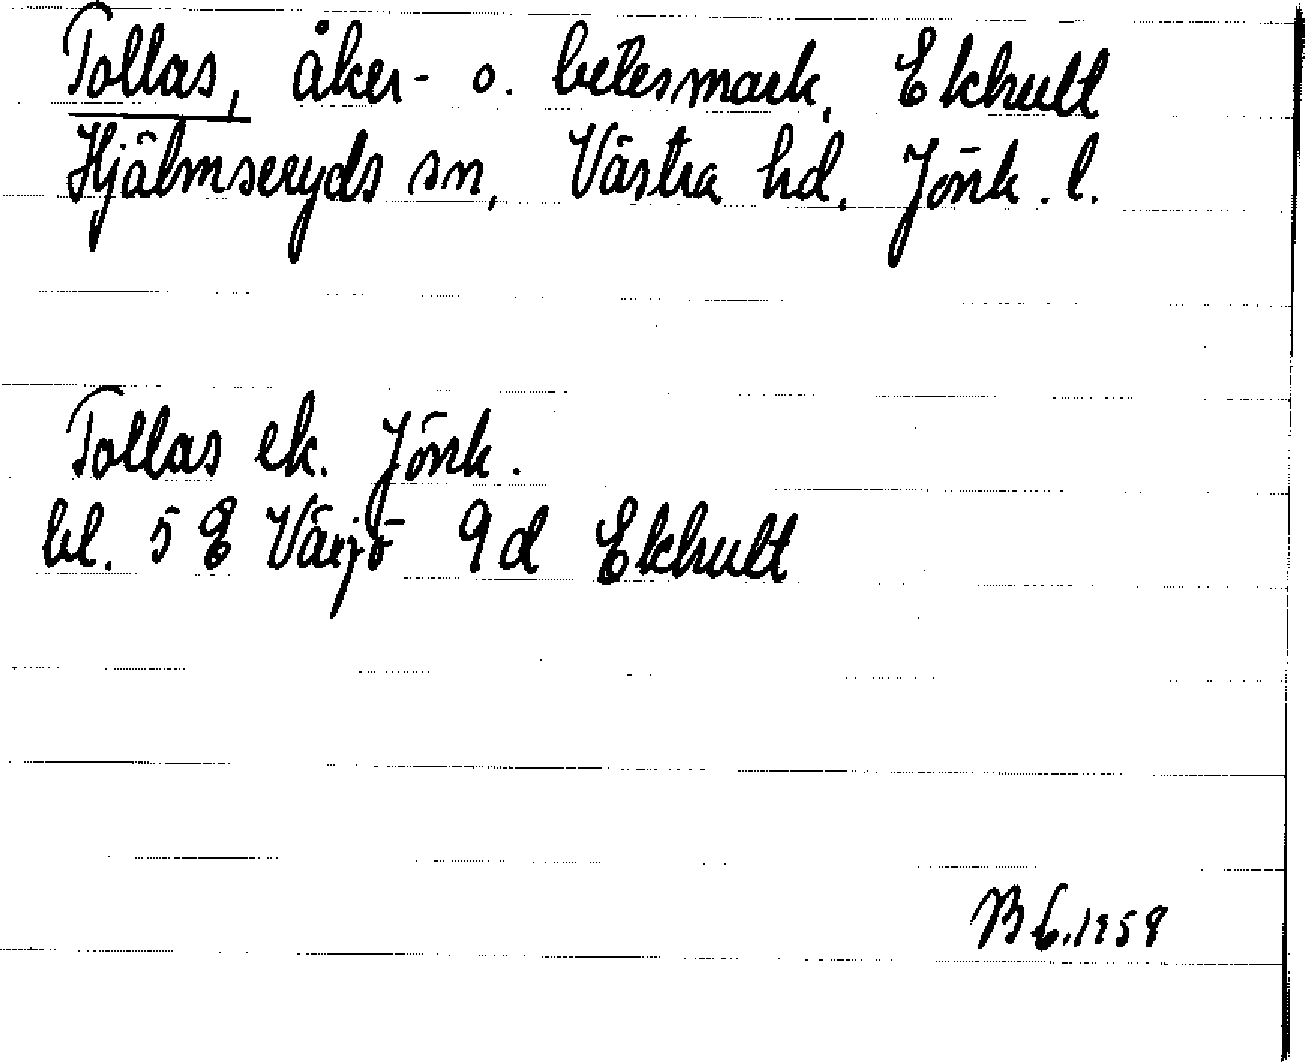 Tollas, åker- o. betesmark, Ekhult
Hjälmseryds sn, Västra hd, Jönk. l.
Tollas ek. Jönk.
bl. 5 E Växjö 9d Ekhult
1958